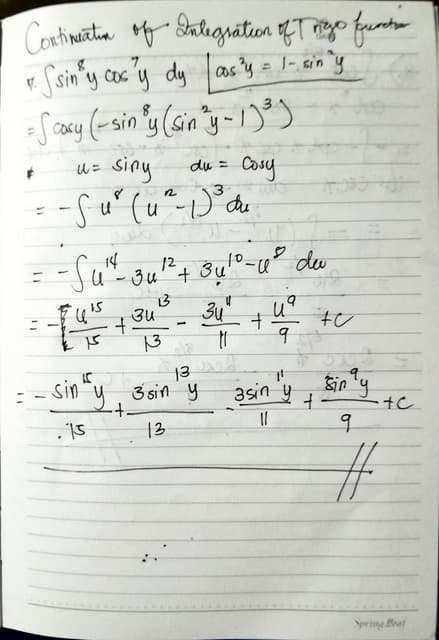 Continuation of Integration of Trigo function
7. ∫sin⁸y cos⁷y dy | cos²y = 1 - sin²y
= ∫cosy (-sin⁸y (sin²y - 1)³)
u = siny du = cosy
= -∫u⁸ (u² - 1)³ du
= -∫u¹⁴ - 3u¹² + 3u¹⁰ - u⁸ du
= -u¹⁵/15 + 3u¹³/13 - 3u¹¹/11 + u⁹/9 + c
= -sin¹⁵y/15 + 3sin¹³y/13 - 3sin¹¹y/11 + sin⁹y/9 + c
Spring Leaf